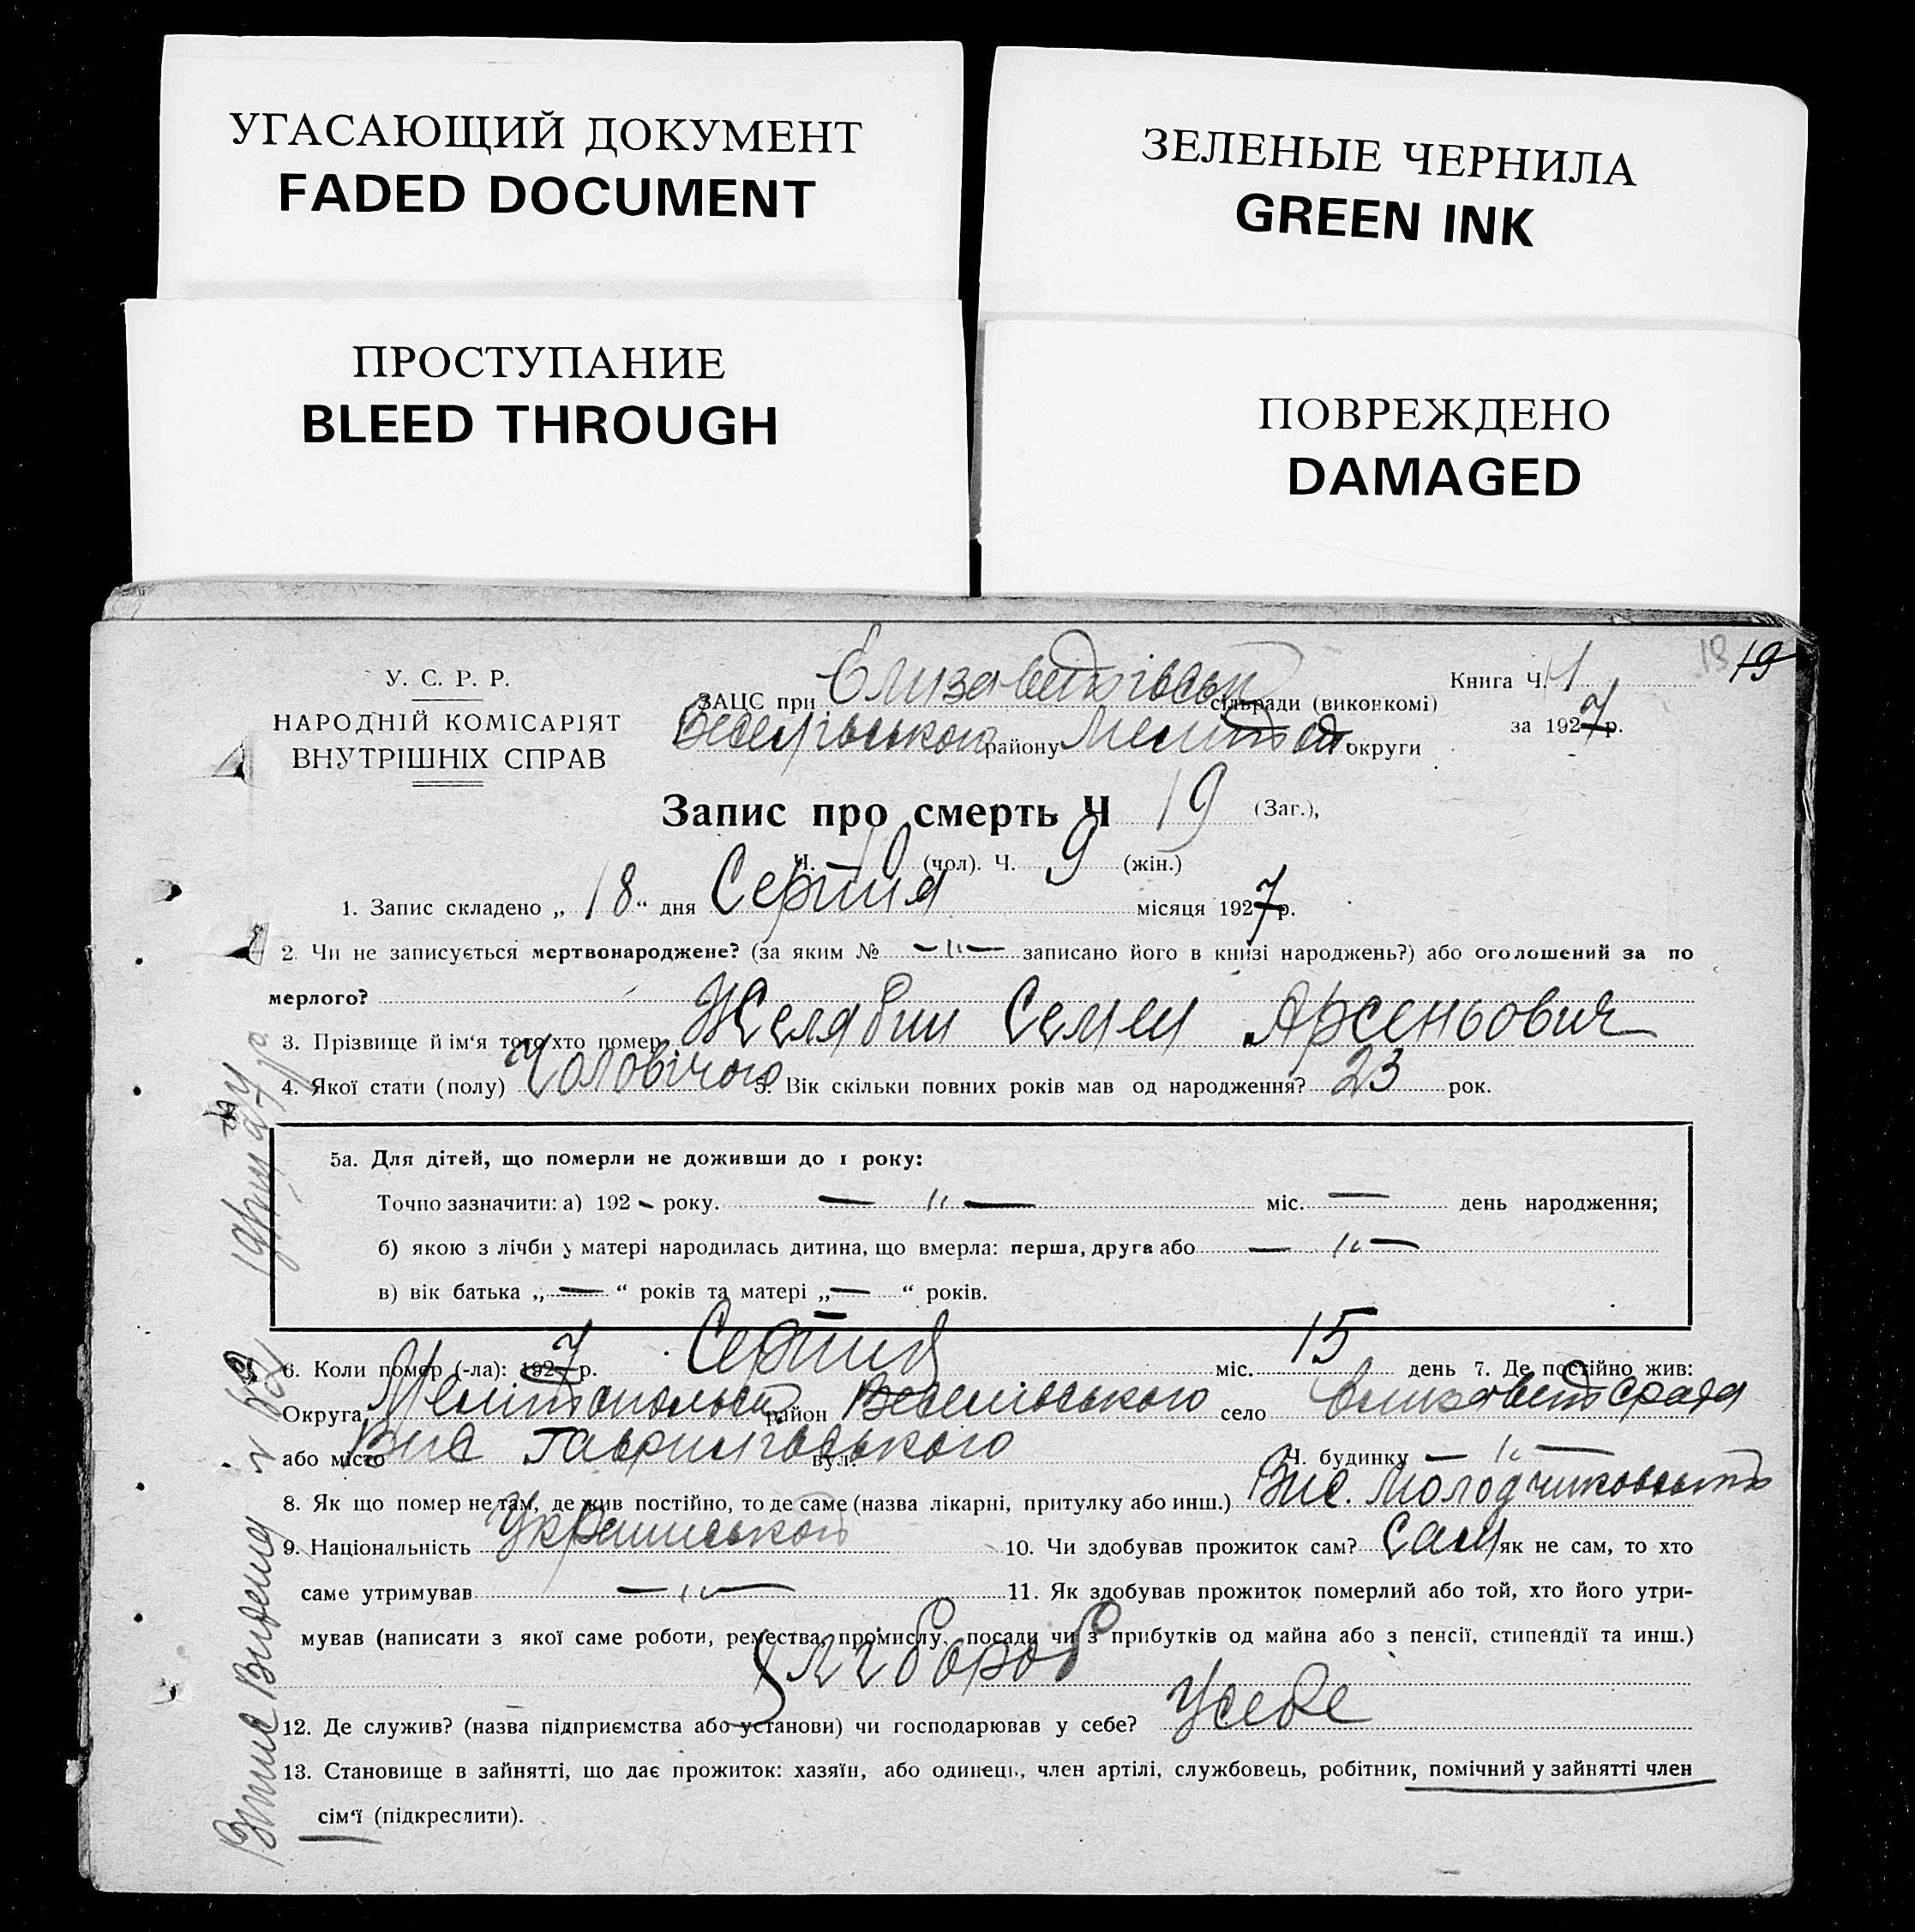 УГАСАЮЩИЙ ДОКУМЕНТ
FADED DOCUMENT
ЗЕЛЕНЫЕ ЧЕРНИЛА
GREEN INK
ПРОСТУПАНИЕ
BLEED THROUGH
ПОВРЕЖДЕНО
DAMAGED
18 19
У. С. Р. Р.
НАРОДНІЙ КОМІСАРІЯТ
ВНУТРІШНІХ СПРАВ
ЗАЦС при Єлизаветівськ сільради (виконкомі)
Веселівського району Мелітоп округи
Книга Ч. 1
за 1927 р.
Запис про смерть Ч 19 (Заг.),
Ч. 10 (чол). Ч. 9 (жін.)
1. Запис складено „ 18 “ дня Серпня місяця 1927 р.
2. Чи не записується мертвонароджене? (за яким № —"— записано його в книзі народжень?) або оголошений за по
мерлого?
3. Прізвище й ім'я того хто помер Желябин Семен Арсеньович
4. Якої стати (полу) Чоловічого 5. Вік скільки повних років мав од народження? 23 рок.
5а. Для дітей, що померли не доживши до 1 року:
Точно зазначити: а) 192 - року. — " — міс. — день народження;
б) якою з лічби у матері народилась дитина, що вмерла: перша, друга або — " —
в) вік батька „ — “ років та матері „ — “ років.
6. Коли помер (-ла): 1927 р. Серпня міс. 15 день 7. Де постійно жив:
Округа Мелітопольськ район Веселівського село Єлизаветград
або місто Вис Гаврилівського вул. Ч. будинку — " —
8. Як що помер не там, де жив постійно, то де саме (назва лікарні, притулку або инш.) Вис.
9. Національність Українською 10. Чи здобував прожиток сам? Сам як не сам, то хто
саме утримував — " — 11. Як здобував прожиток померлий або той, хто його утри-
мував (написати з якої саме роботи, ремества, промислу, посади чи з прибутків од майна або з пенсії, стипендії та инш.)
Хлібороб
12. Де служив? (назва підприємства або установи) чи господарював у себе? У себе
13. Становище в зайнятті, що дає прожиток: хазяїн, або одинець, член артілі, службовець, робітник, помічний у зайнятті член
сім'ї (підкреслити).